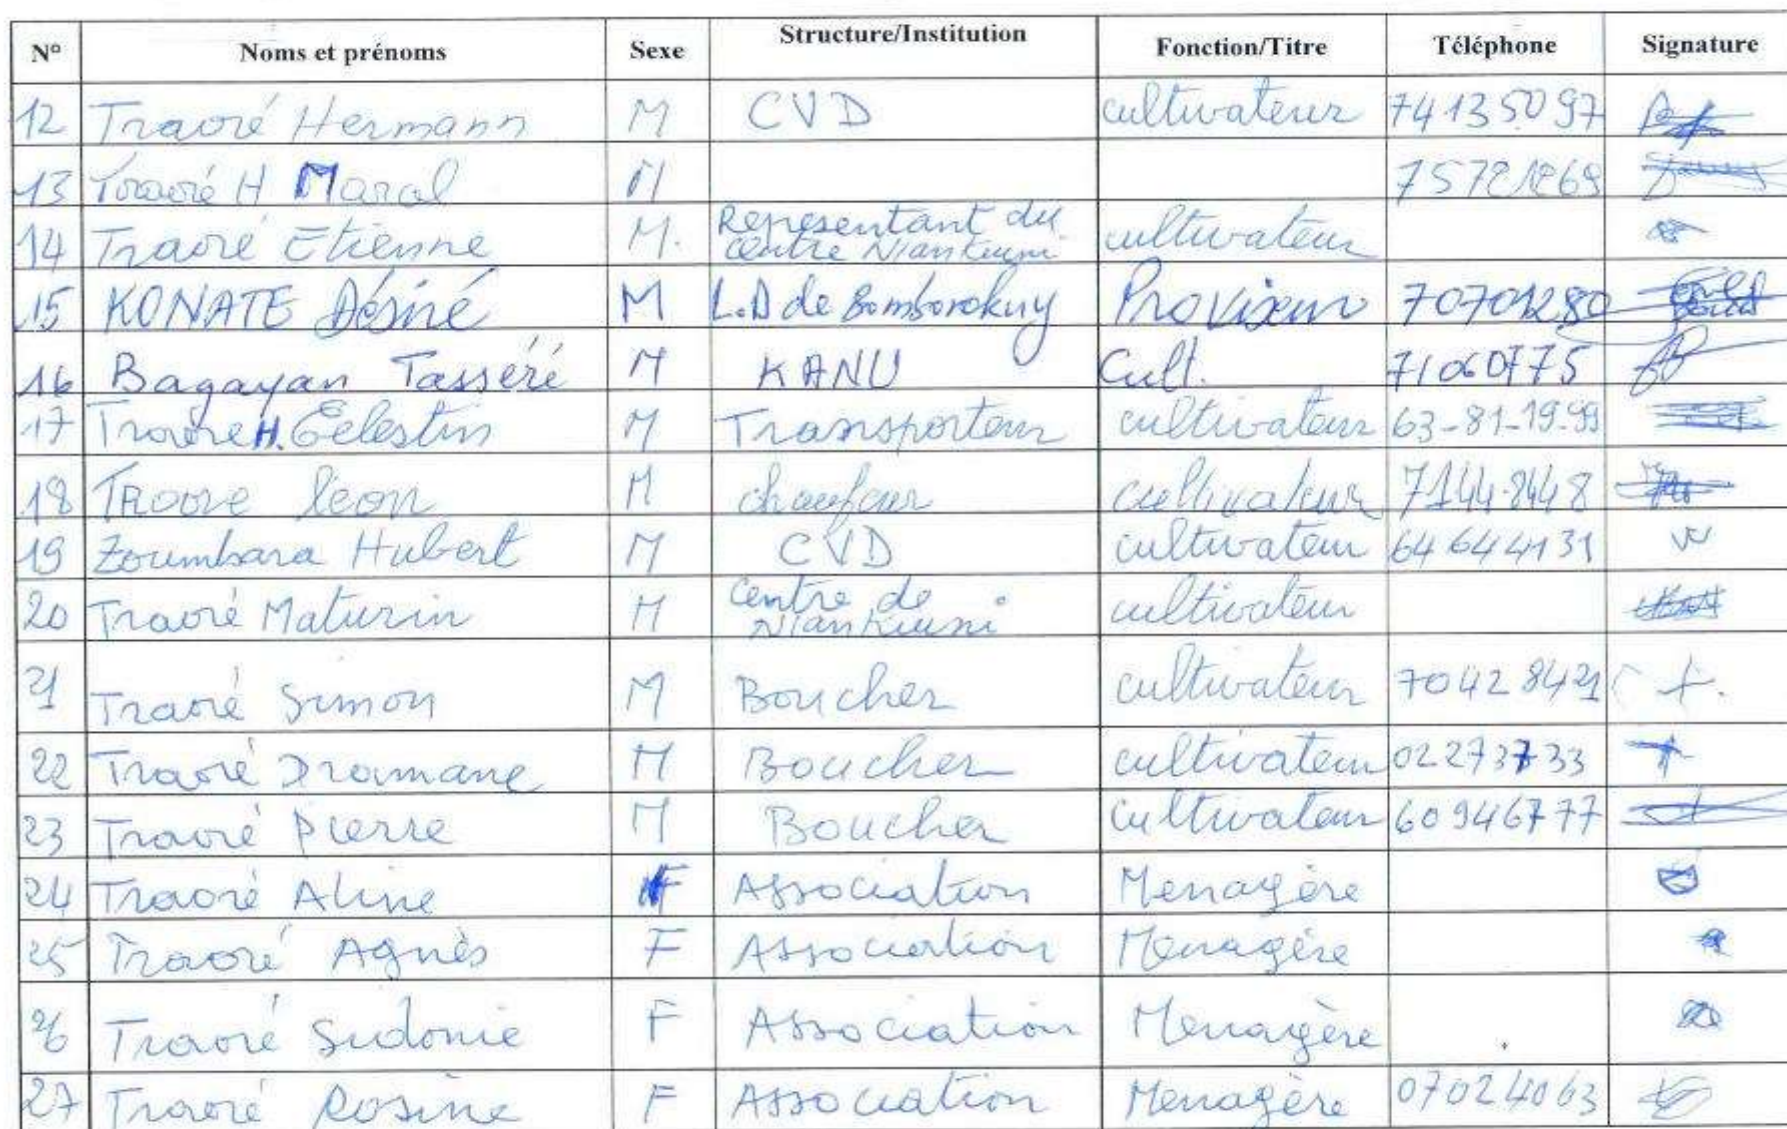 N° Noms et prénoms Sexe Structure/Institution Fonction/Titre Téléphone Signature
12 Traoré Hermann M CVD cultivateur 74135097
13 Traoré H Marcel M
14 Traoré Etienne M. Representant du
centre Niankuini cultivateur
15 KONATE Désiré M L.D de Bomborokuy Proviseur 70701280
16 Bagayan Tasséré M KANU Cult. 71060775
17 Traore H. Celestin M Transporteur cultivateur 63-81-19-99
18 TRaore leon M chaufeur cultivateur 7144-8448
19 Zoumbara Hubert M CVD cultivateur 64644131
20 Traoré Maturin M Centre de
Niankuini cultivateur
21 Traoré Simon M Boucher cultivateur 70428421
22 Traoré Dramane M Boucher cultivateur 02273733
23 Traoré Pierre M Boucher cultivateur 60946777
24 Traoré Aline F Association Menagère
25 Traoré Agnès F Association Menagère
26 Traoré Sidonie F Association Menagère
27 Traoré Rosine F Association Menagère 07024063